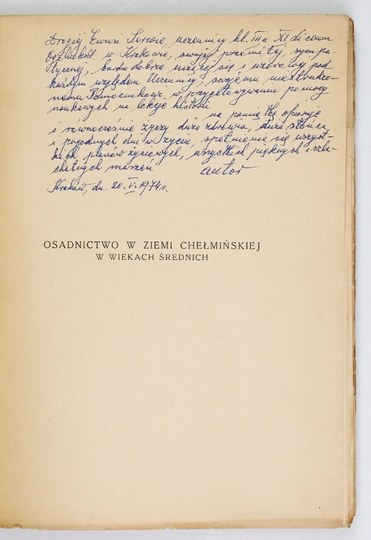 Drogiej Ewuni Serczie, uczennicy kl. III a XI Liceum
w Krakowie, swojej przemiłej, sympa-
tycznej, bardzo dobrze uczącej się i wzorowej pod
każdym względem Uczennicy,
w przygotowywaniu pomocy
naukowych na lekcje historii
na pamiątkę ofiaruje
i równocześnie życzy dużo zdrowia, dużo słońca
i pogodnych dni w życiu, spełnienia się wszyst-
kich planów życiowych, wszystkich pięknych i szla-
chetnych marzeń autor
Kraków, dn. 20. V. 1974 r.
OSADNICTWO W ZIEMI CHEŁMIŃSKIEJ
W WIEKACH ŚREDNICH